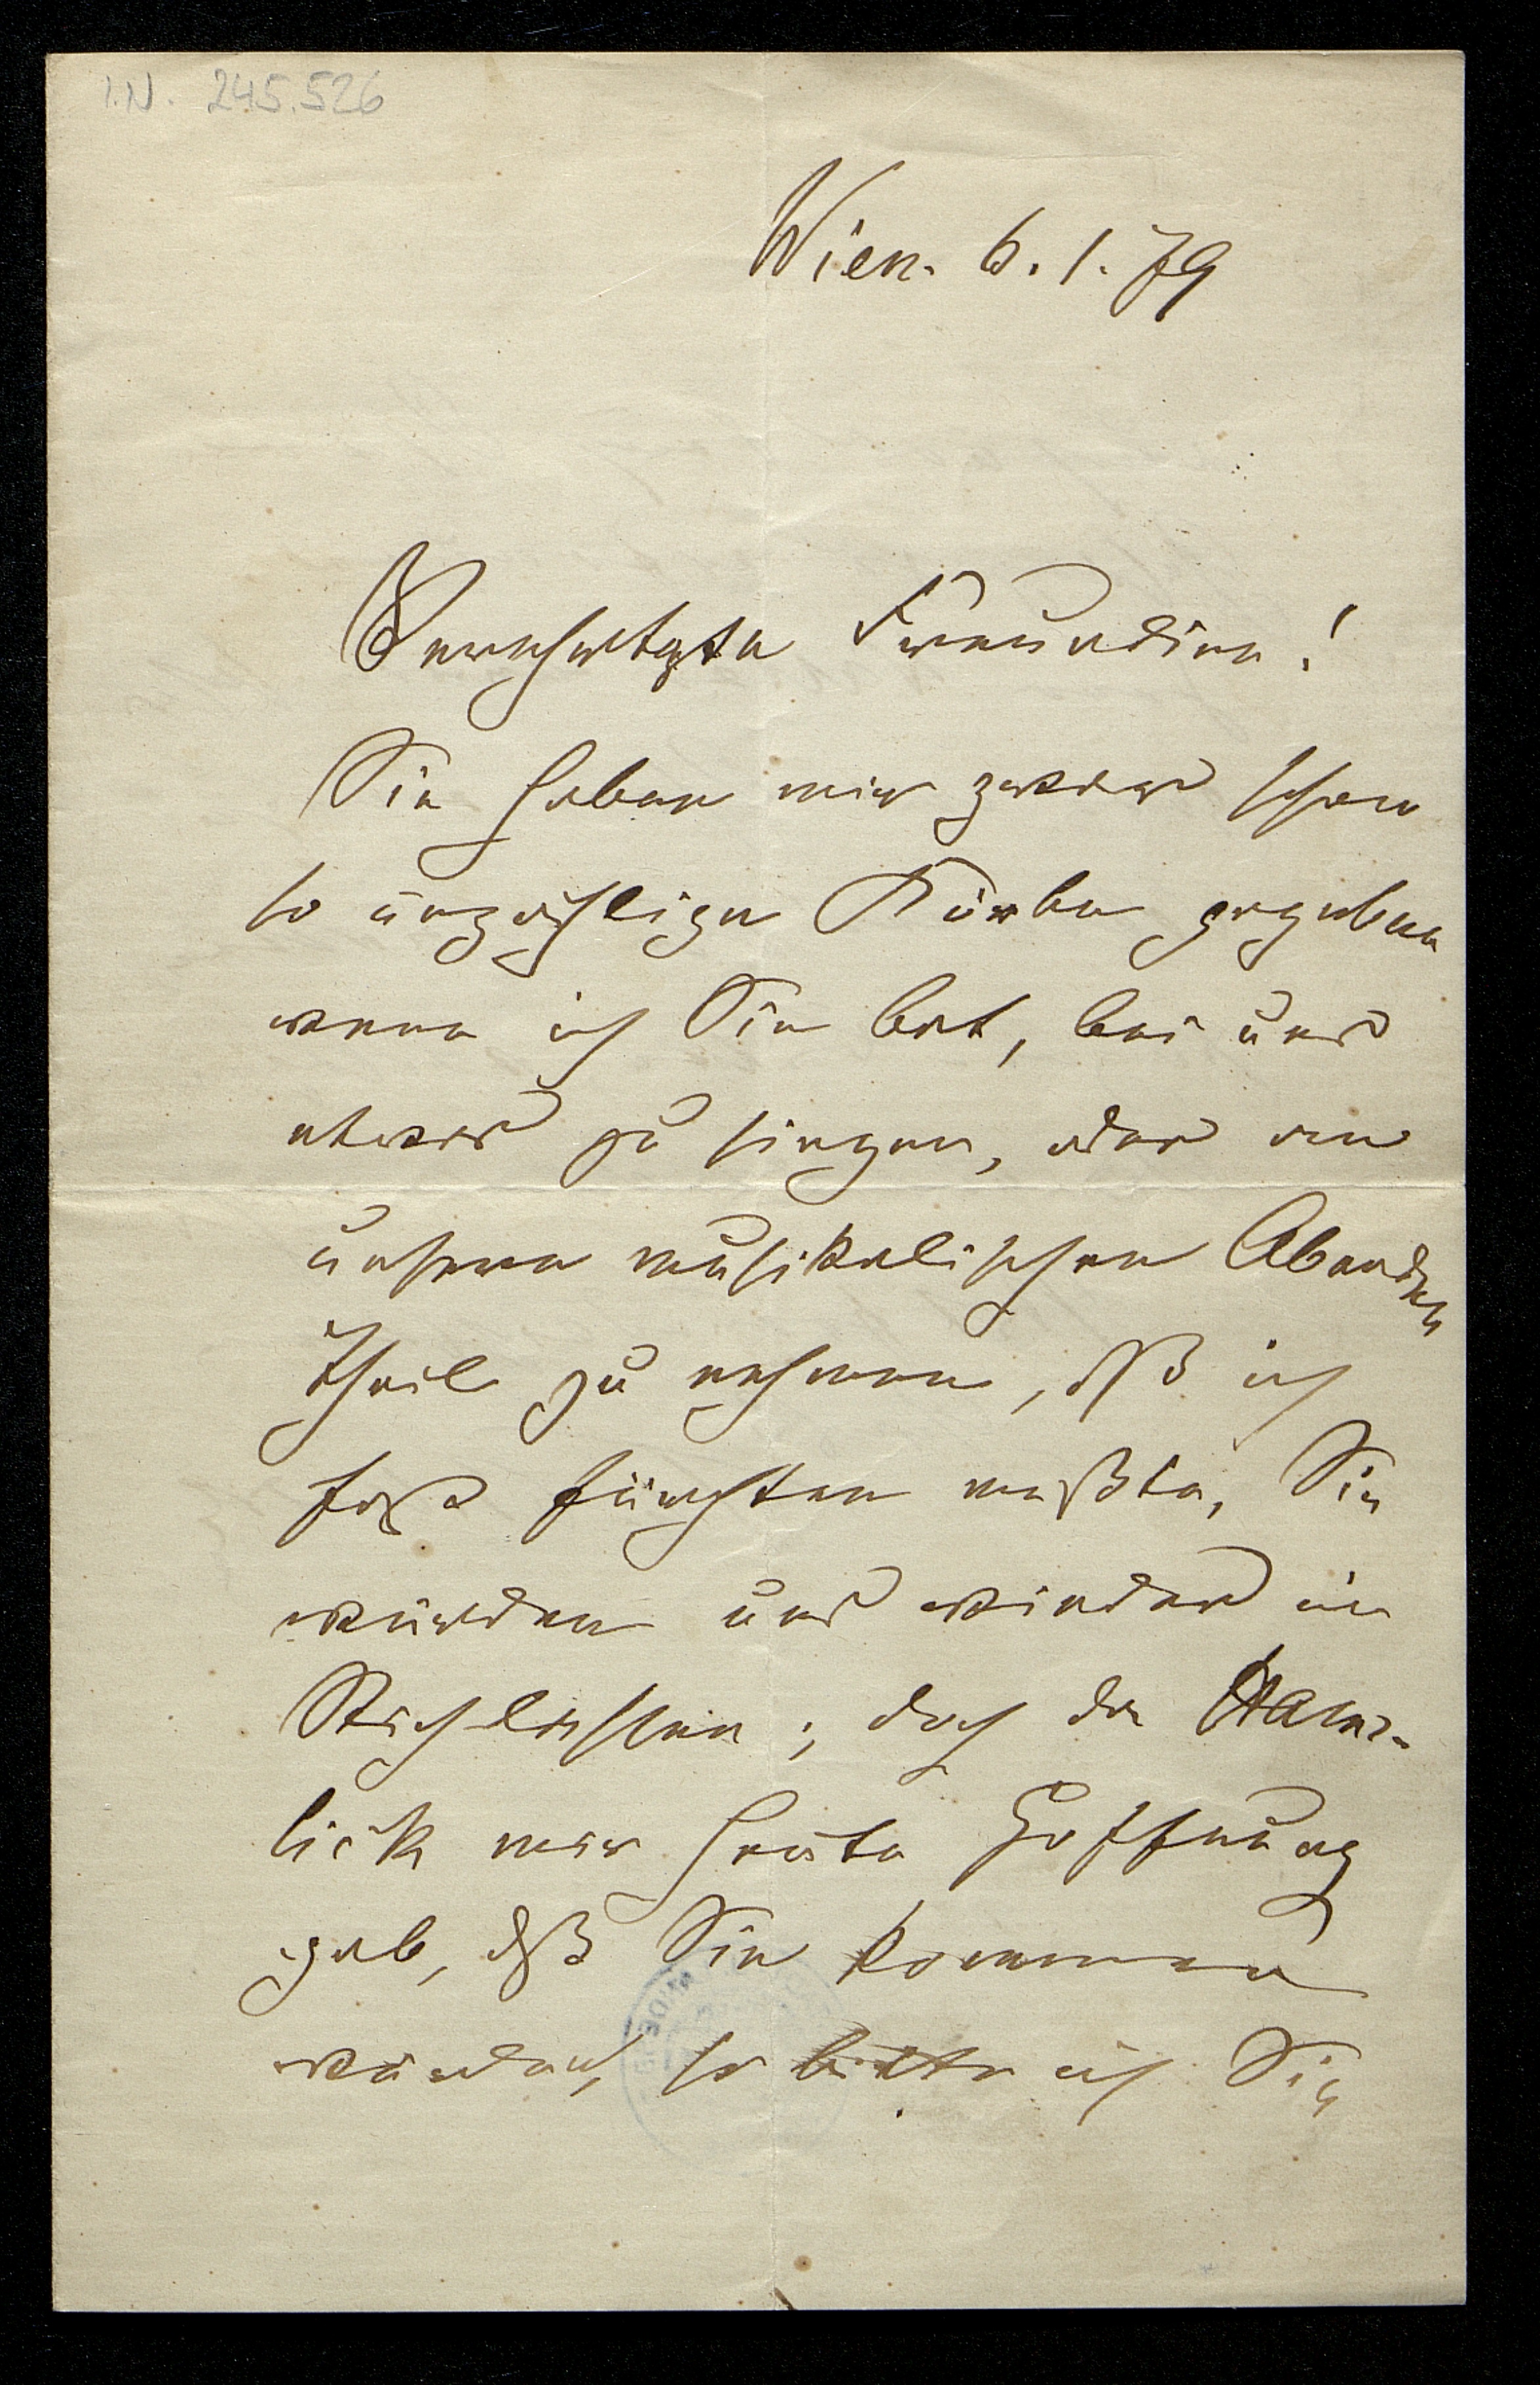 I.N. 245.526
Wien. 6. 1. 79
Verehrteste Freundin!
Sie haben mir zwar schon
so unzählige Körbe gegeben
wenn ich Sie bat, bei uns
etwas zu singen, oder an
unseren musikalischen Abenden
Theil zu nehmen, dß ich
fast fürchten mußte, Sie
würden uns wieder im
Stich lassen; doch da
lick mir heute Hoffnung
gab, dß Sie kommen
würden, so bitte ich Sie